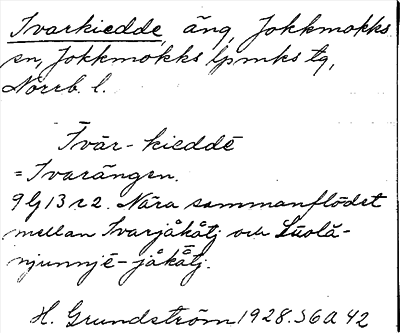 Ivarkiedde, äng, Jokkmokks
sn, Jokkmokks lpmks tg,
Norrb. l.
Īvār-kieddē
= Ivarängen.
9 lj 13 r 2. Nära sammanflödet
mellan Ivarjåkåtj och Suolå-
njunnjē-jåkåtj.
H. Grundström 1928. S6a 42